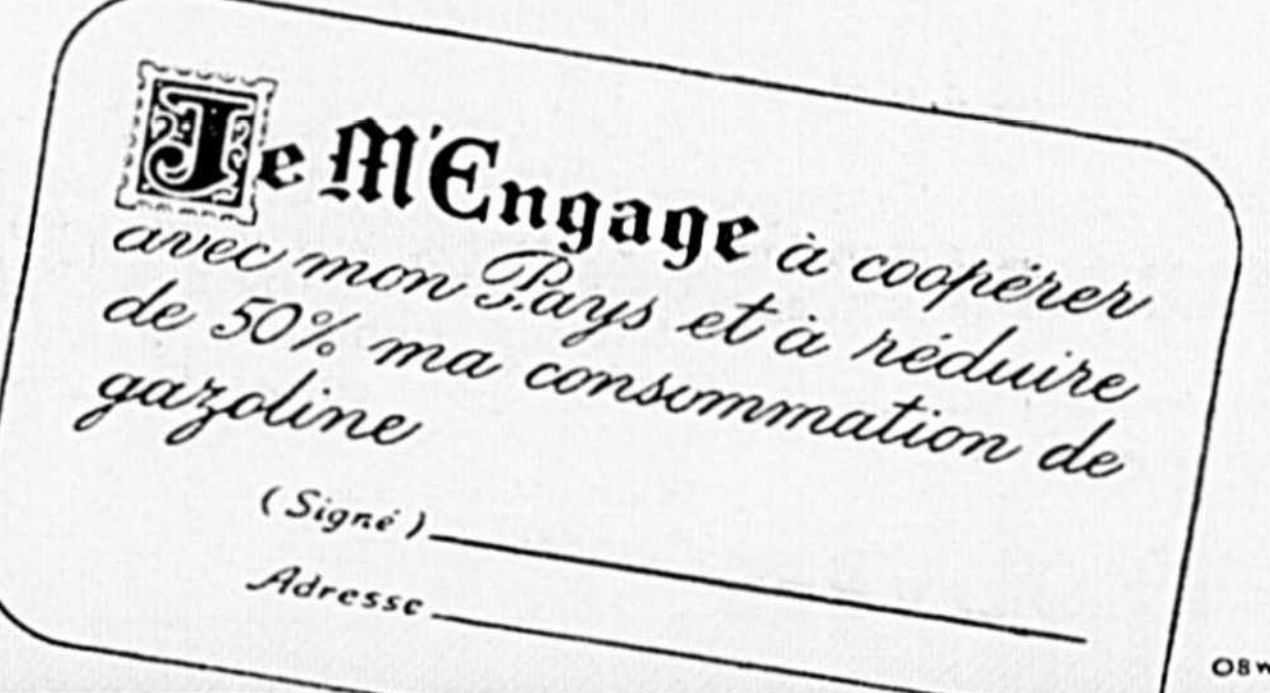 Je M'Engage à coopérer
avec mon Pays et à réduire
de 50% ma consommation de
gazoline
(Signé)
Adresse